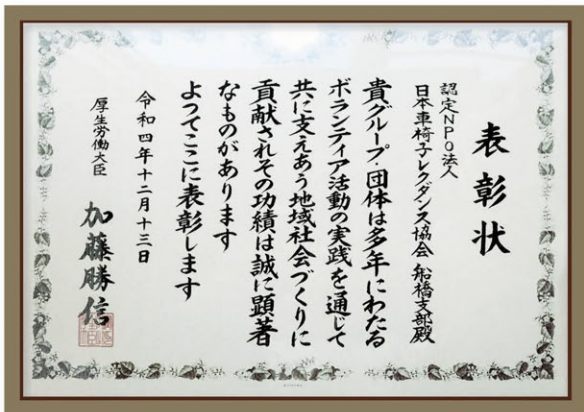 表彰状
認定NPO法人
日本車椅子レクダンス協会 船橋支部殿
貴グループ、団体は多年にわたる
ボランティア活動の実践を通じて
共に支えあう地域社会づくりに
貢献されその功績は誠に顕著
なものがあります
よってここに表彰します
令和四年十二月十三日
厚生労働大臣
加藤勝信